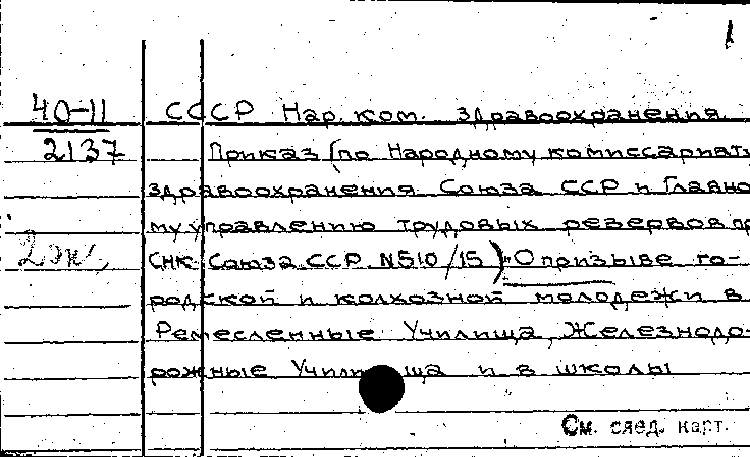 1
40-11
2137
2 эк.,
СССР Нар. ком. здравоохранения.
Приказ (по Народному комиссариат
здравоохранения Союза ССР и Главно
му управлению трудовых резервов пр
СНК Союза ССР N510/15) "О призыве го-
родской и колхозной молодежи в
Ремесленные Училища, Железнодо-
рожные Учили ща и в школы
См. след. карт.